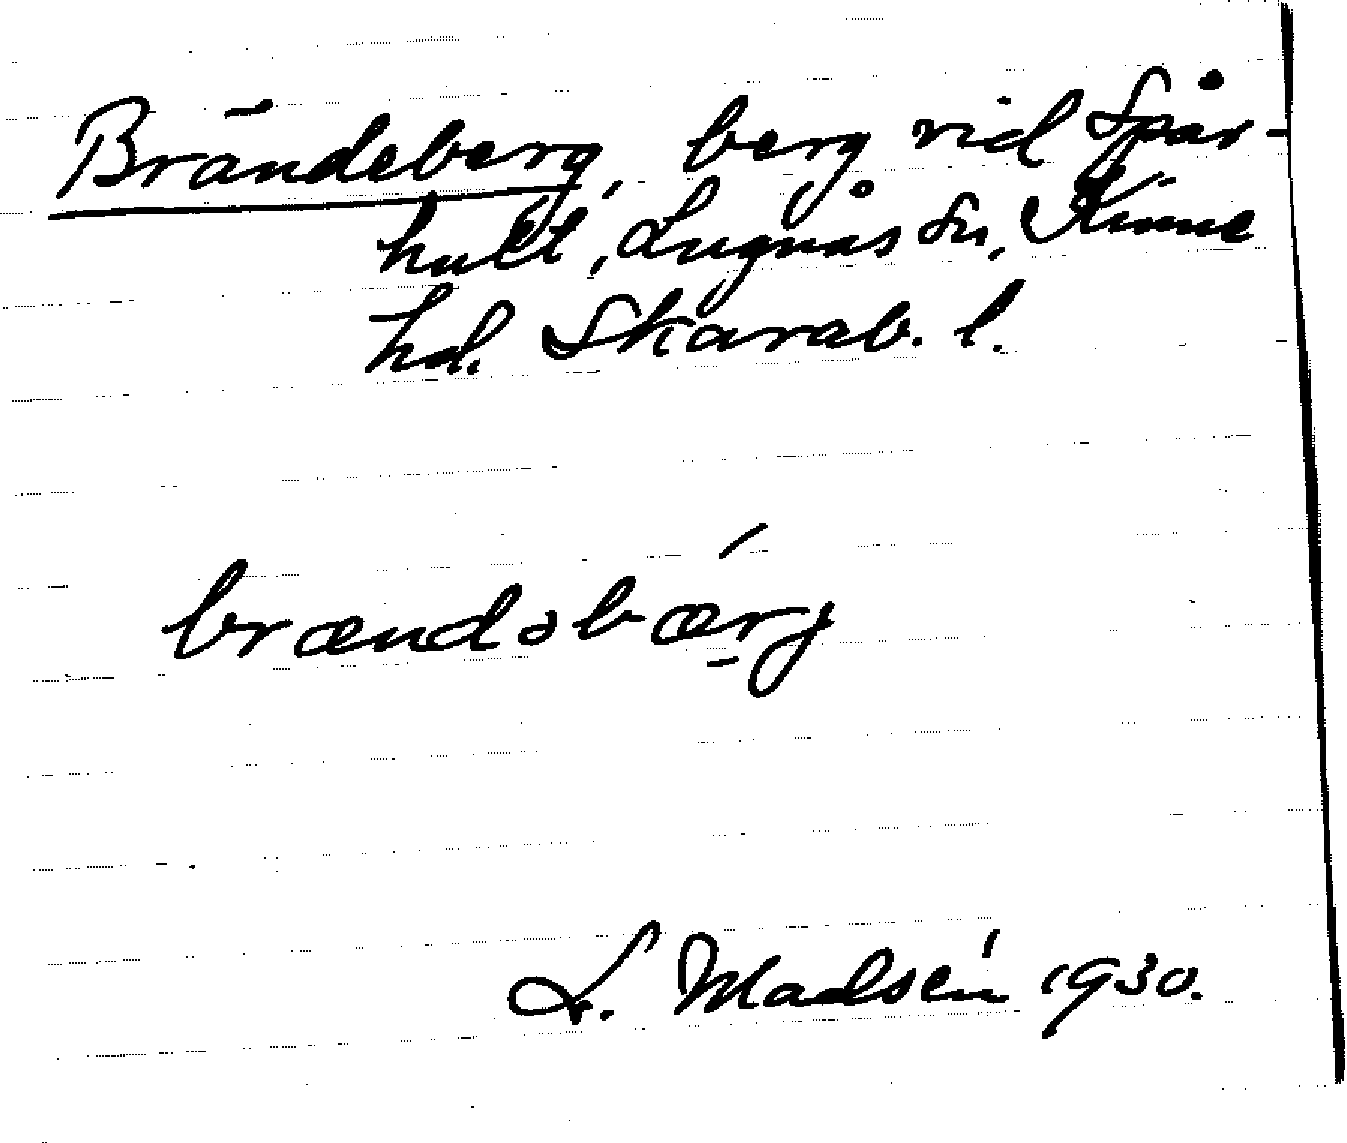 Brändeberg, berg vid Spår-
hult, Lugnås sn, Kinne
hd. Skarab. l.
brændəbærj
L. Madsén 1930.